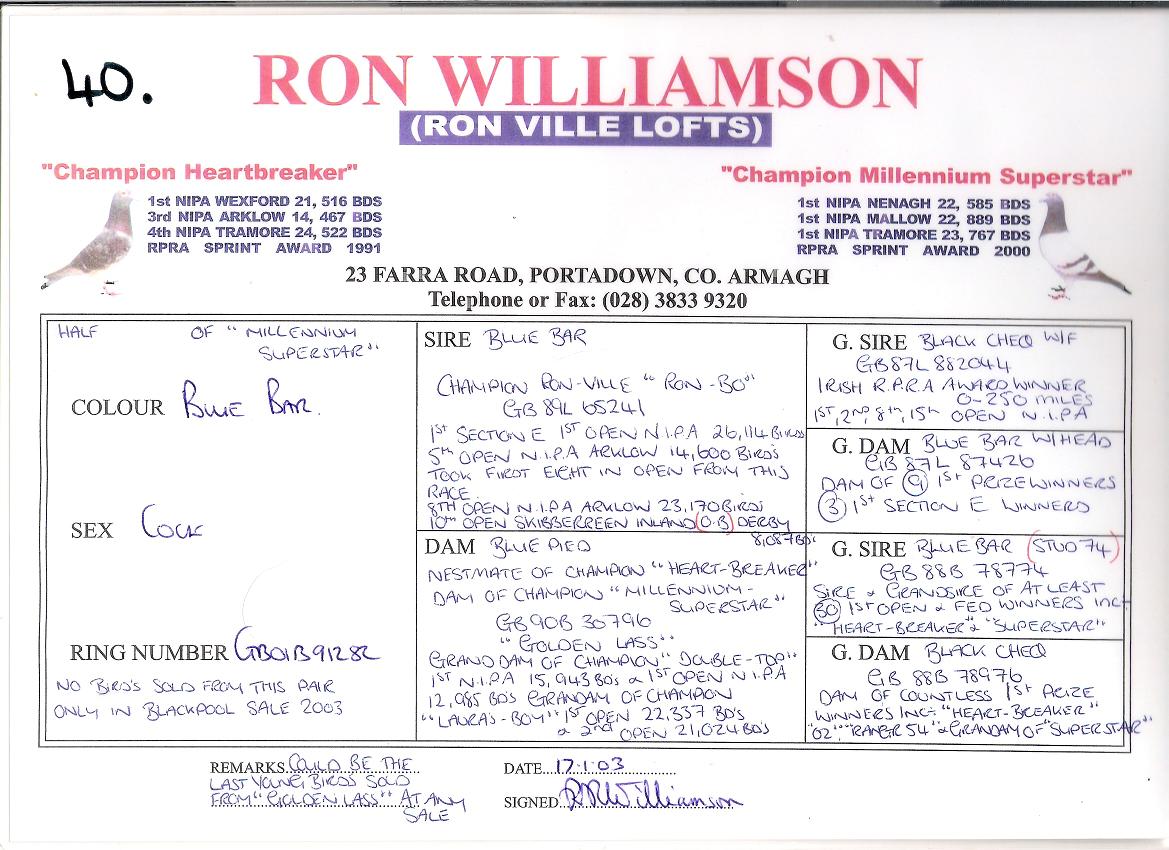 40.
RON WILLIAMSON
(RON VILLE LOFTS)
"Champion Heartbreaker"
1st NIPA WEXFORD 21, 516 BDS
3rd NIPA ARKLOW 14, 467 BDS
4th NIPA TRAMORE 24, 522 BDS
RPRA SPRINT AWARD 1991
"Champion Millennium Superstar"
1st NIPA NENAGH 22, 585 BDS
1st NIPA MALLOW 22, 889 BDS
1st NIPA TRAMORE 23, 767 BDS
RPRA SPRINT AWARD 2000
23 FARRA ROAD, PORTADOWN, CO. ARMAGH
Telephone or Fax: (028) 3833 9320
HALF OF "MILLENNIUM
SUPERSTAR"
COLOUR BLUE BAR.
SEX COCK
RING NUMBER GB01B91282
NO BIRD'S SOLD FROM THIS PAIR
ONLY IN BLACKPOOL SALE 2003
SIRE BLUE BAR
CHAMPION RON-VILLE "RON-BO"
GB 89L 65241
1ST SECTION E 1ST OPEN N.I.P.A 26,114 BIRDS
5TH OPEN N.I.P.A ARKLOW 14,600 BIRD'S
TOOK FIRST EIGHT IN OPEN FROM THIS
RACE.
8TH OPEN N.I.P.A ARKLOW 23,170 BIRD'S
10TH OPEN SKIBBERREEN INLAND (O.B) DERBY
8,087 BD'S
DAM BLUE PIED
NESTMATE OF CHAMPION "HEART-BREAKER"
DAM OF CHAMPION "MILLENNIUM-
SUPERSTAR"
GB90B 30796
"GOLDEN LASS"
GRAND DAM OF CHAMPION "DOUBLE-TOP"
1ST N.I.P.A 15,943 BD'S & 1ST OPEN N.I.P.A
12,985 BD'S GRANDAM OF CHAMPION
"LAURA'S-BOY" 1ST OPEN 22,337 BD'S
& 2ND OPEN 21,024 BD'S
G. SIRE BLACK CHEQ W/F
GB87L 882044
IRISH R.P.R.A AWARD WINNER
0-250 MILES
1ST, 2ND, 8TH, 15TH OPEN N.I.P.A
G. DAM BLUE BAR W/HEAD
GB 87L 87426
DAM OF 9 1ST PRIZEWINNERS
3 1ST SECTION E WINNERS
G. SIRE BLUE BAR (STUD 74)
GB 88B 78774
SIRE & GRANDSIRE OF AT LEAST
30 1ST OPEN & FED WINNERS INC:-
"HEART-BREAKER" & "SUPERSTAR"
G. DAM BLACK CHEQ
GB 88B 78976
DAM OF COUNTLESS 1ST PRIZE
WINNERS INC:- "HEART-BREAKER"
"02" "RANGER 54" & GRANDAM OF "SUPERSTAR"
REMARKS COULD BE THE
LAST YOUNG BIRDS SOLD
FROM "GOLDEN LASS" AT ANY
SALE
DATE 17.1.03
SIGNED R.R.Williamson